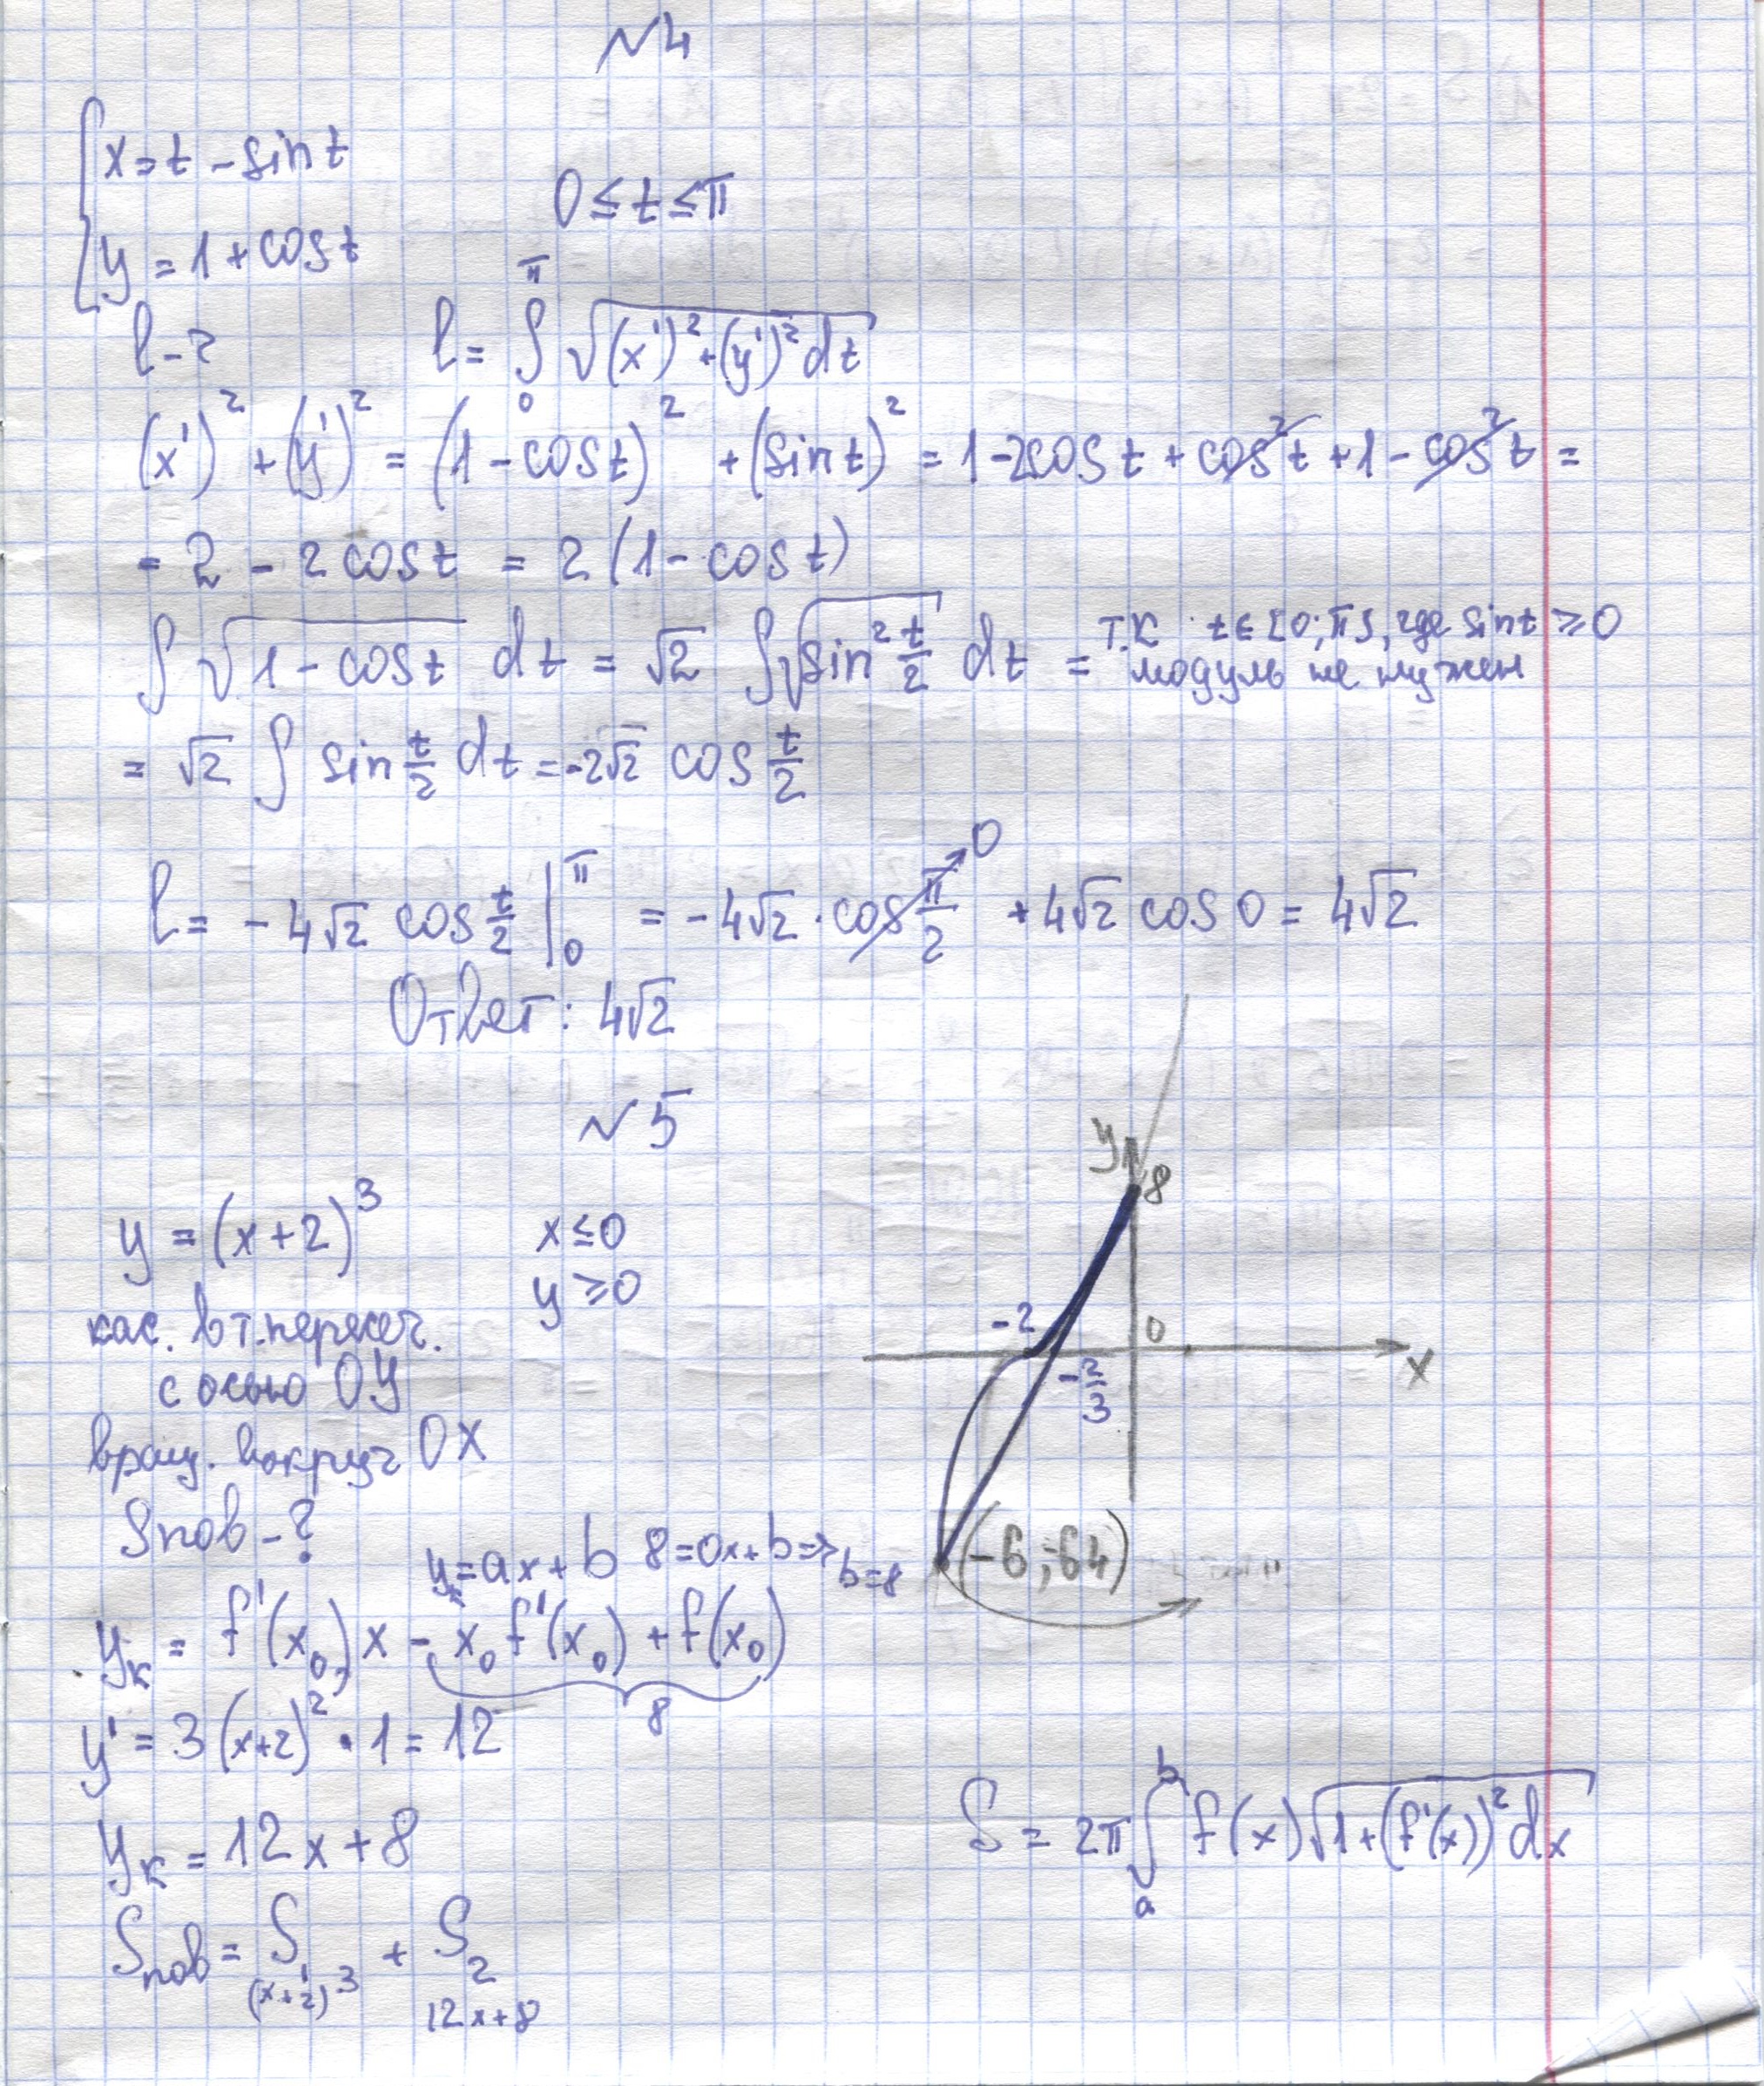 №4
{ x = t - sin t
0 ≤ t ≤ π
y = 1 + cos t
l - ? l = ∫₀^π √((x')² + (y')² dt)
(x')² + (y')² = (1 - cos t)² + (sin t)² = 1 - 2cos t + cos² t + 1 - cos² t =
= 2 - 2 cos t = 2 (1 - cos t)
∫ √(1 - cos t) dt = √2 ∫ √(sin² t/2) dt = т.к t ∈ [0; π], где sin t ≥ 0
модуль не нужен
= √2 ∫ sin t/2 dt = -2√2 cos t/2
l = -4√2 cos t/2 |₀^π = -4√2 · cos π/2 → 0 + 4√2 cos 0 = 4√2
Ответ: 4√2
№5
y = (x+2)³ x ≤ 0
y ≥ 0
кас. в т. пересеч.
с осью OY
вращ. вокруг OX
Sпов - ?
y 8
-2 0 x
-2/3
(-6; -64)
yк = ax + b 8 = 0x + b => b = 8
yк = f'(x₀) x - x₀ f'(x₀) + f(x₀)
8
y' = 3 (x+2)² · 1 = 12
yк = 12x + 8
S = 2π ∫ₐᵇ f(x) √(1 + (f'(x))² dx)
Sпов = S₁ + S₂
(x+2)³ 12x+8